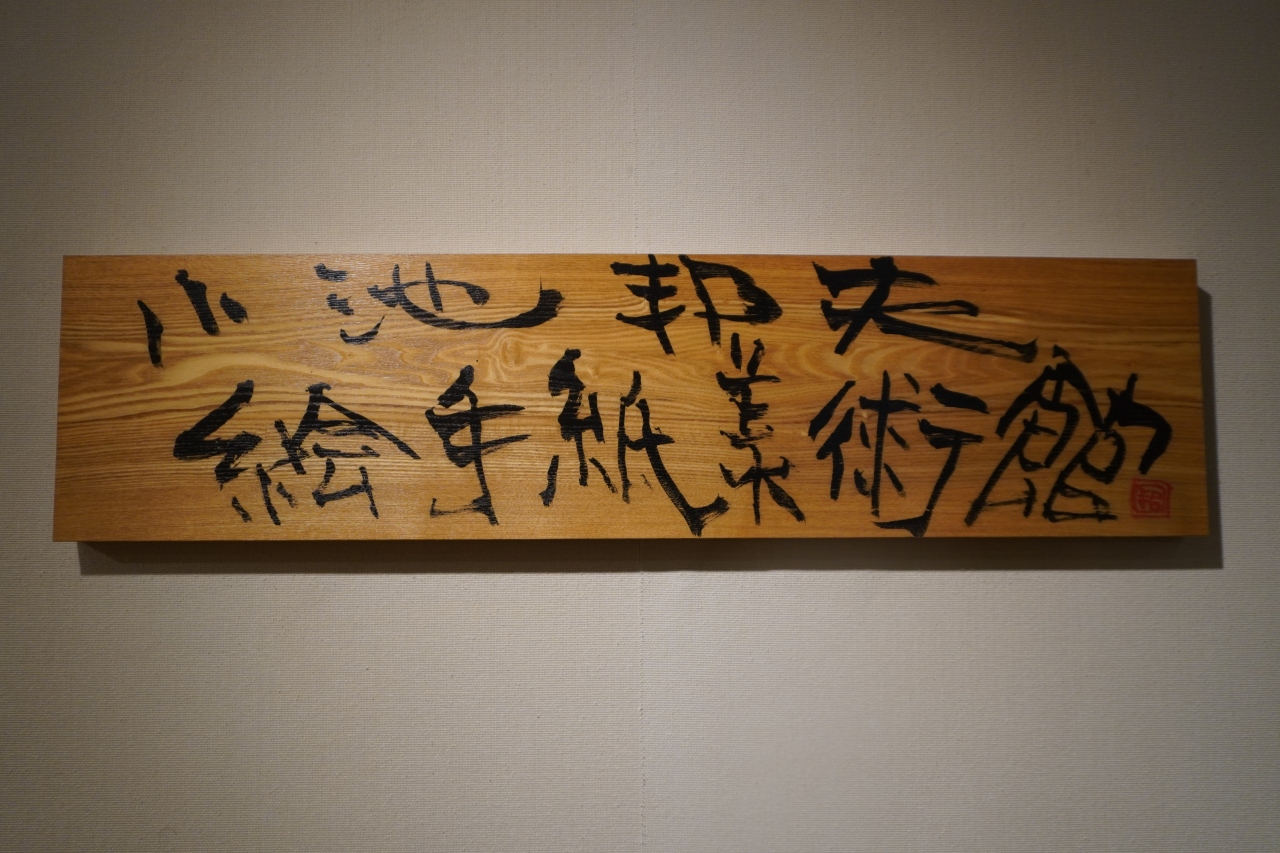 小池邦夫
絵手紙美術館